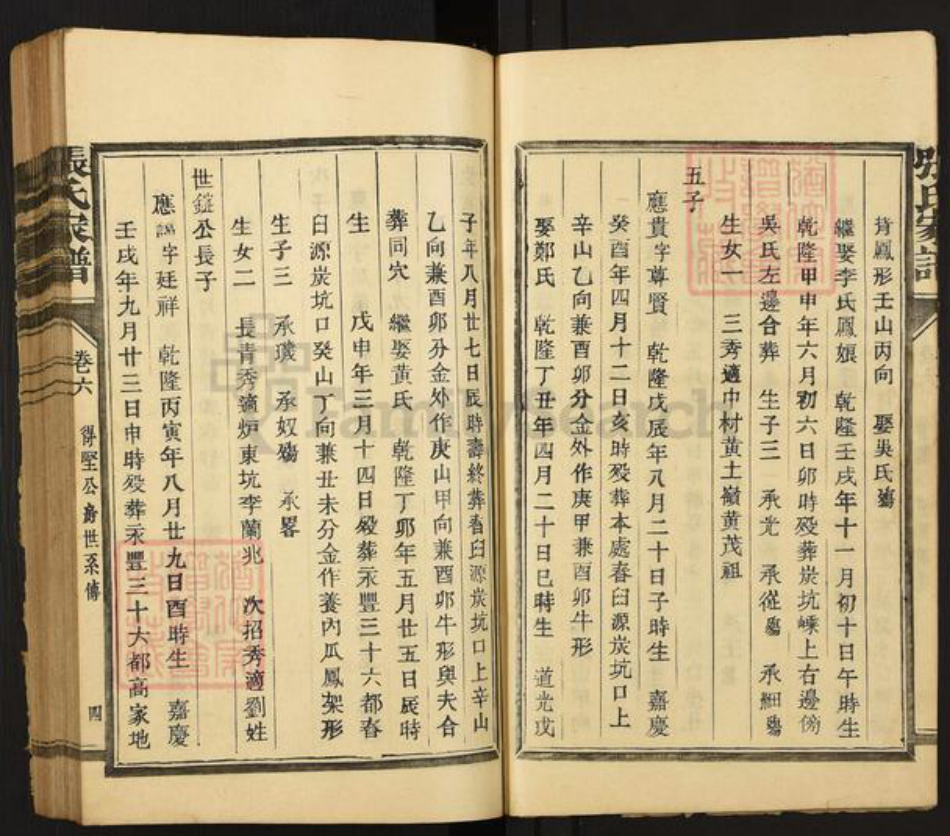 背鳳形壬山丙向　娶吳氏殤
繼娶李氏鳳娘　乾隆壬戌年十一月初十日午時生
乾隆甲申年六月初六日卯時殁葬炭坑嵊上右邊傍
吳氏左邊合葬　生子三　承光　承從殤　承細殤
生女一　三秀適中村黄土嶺黄茂祖
五子
應貴字尊賢　乾隆戊辰年八月二十日子時生　嘉慶
癸酉年四月十二日亥時殁葬本處舂臼源炭坑口上
辛山乙向兼酉卯分金外作庚甲兼酉卯牛形
娶鄭氏　乾隆丁丑年四月二十日巳時生　道光戊
子年八月廿七日辰時壽終葬舂臼源炭坑口上辛山
乙向兼酉卯分金外作庚山甲向兼酉卯牛形與夫合
葬同穴　繼娶黄氏　乾隆丁卯年五月廿五日辰時
生　戊申年三月十四日殁葬永豐三十六都舂
臼源炭坑口癸山丁向兼丑未分金作養內瓜鳳架形
生子三　承璣　承奴殤　承畧
生女二　長青秀適炉東坑李蘭兆　次招秀適劉姓
世鎧公長子
應諨字廷祥　乾隆丙寅年八月廿九日酉時生　嘉慶
壬戌年九月廿三日申時殁葬永豐三十六都高家地
張氏家譜　卷六　得堅公房世系傳　四
張氏家譜
FamilySearch